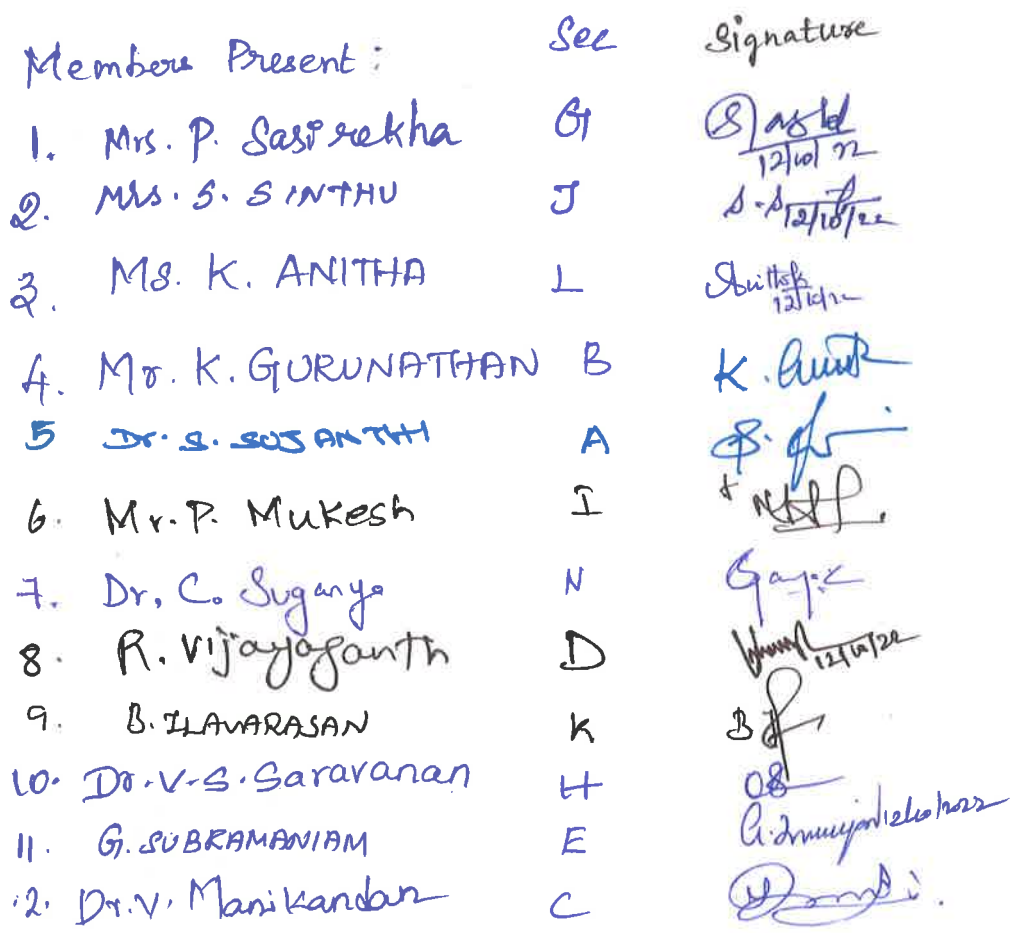 Members Present : Sec Signature
1. Mrs. P. Sasirekha G 12/10/22
2. Mrs. S. SINTHU J S. S 12/10/22
3. Ms. K. ANITHA L 12/10/22
4. Mr. K. GURUNATHAN B K.
5 Dr. S. SUJANTHI A S.
6. Mr. P. Mukesh I
7. Dr. C. Suganya N
8. R. Vijayaganth D 12/10/22
9. B. ILAVARASAN K B
10. Dr. V. S. Saravanan H
11. G. SUBRAMANIAM E G. 12/10/2022
12. Dr. V. Manikandan C